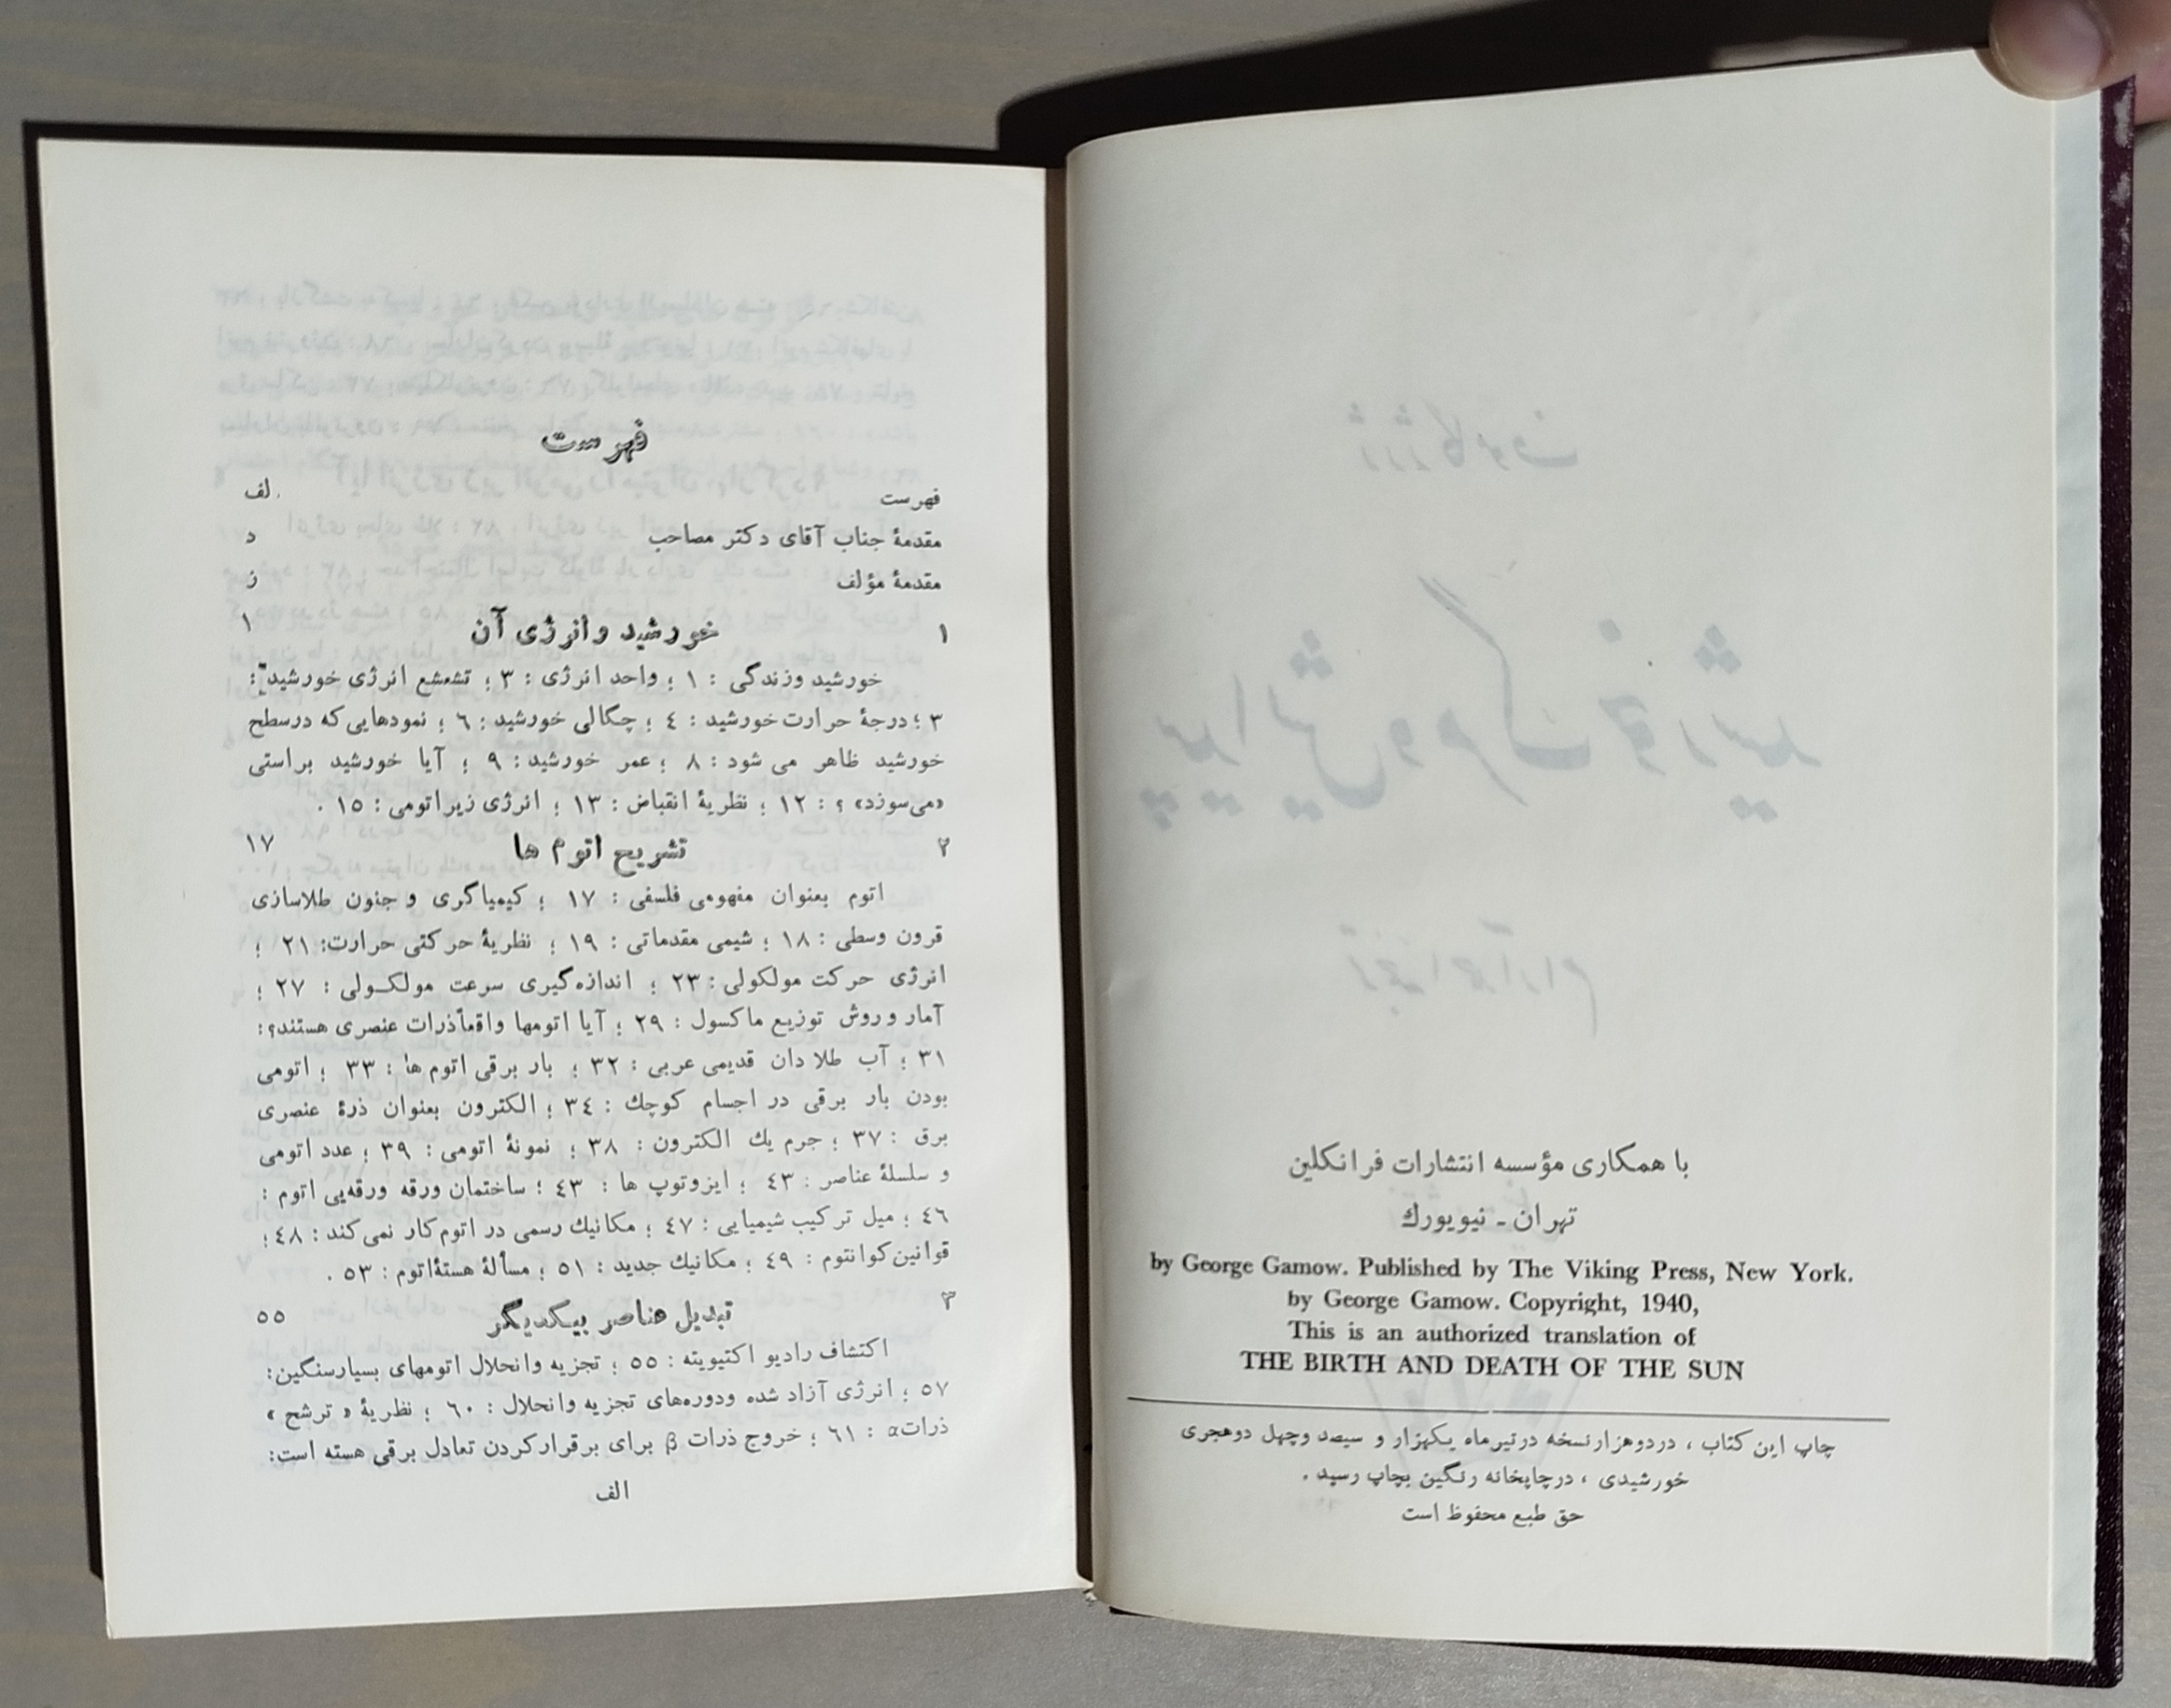 با همکاری مؤسسه انتشارات فرانکلین
تهران ـ نیویورك
by George Gamow. Published by The Viking Press, New York.
by George Gamow. Copyright, 1940,
This is an authorized translation of
THE BIRTH AND DEATH OF THE SUN
چاپ این کتاب ، دردوهزارنسخه درتیرماه یکهزار و سیصد وچهل دوهجری
خورشیدی ، درچاپخانه رنگین بچاپ رسید .
حق طبع محفوظ است
فهرست
فهرست لف
مقدمهٔ جناب آقای دکتر مصاحب د
مقدمهٔ مؤلف ز
۱ خورشید وانرژی آن ۱
خورشید وزندگی : ۱ ؛ واحد انرژی : ۳ ؛ تشعشع انرژی خورشید :
۳ ؛ درجهٔ حرارت خورشید : ٤ ؛ چگالی خورشید : ٦ ؛ نمودهایی که درسطح
خورشید ظاهر می شود : ۸ ؛ عمر خورشید : ۹ ؛ آیا خورشید براستی
«می‌سوزد» ؟ : ۱۲ ؛ نظریهٔ انقباض : ۱۳ ؛ انرژی زیراتومی : ۱۵ .
۲ تشریح اتوم ها ۱۷
اتوم بعنوان مفهومی فلسفی : ۱۷ ؛ کیمیاگری و جنون طلاسازی
قرون وسطی : ۱۸ ؛ شیمی مقدماتی : ۱۹ ؛ نظریهٔ حرکتی حرارت: ۲۱ ؛
انرژی حرکت مولکولی : ۲۳ ؛ اندازه‌گیری سرعت مولکـولی : ۲۷ ؛
آمار وروش توزیع ماکسول : ۲۹ ؛ آیا اتومها واقعاًذرات عنصری هستند؟ :
۳۱ ؛ آب طلا دان قدیمی عربی : ۳۲ ؛ بار برقی اتوم ها : ۳۳ ؛ اتومی
بودن بار برقی در اجسام کوچك : ۳٤ ؛ الکترون بعنوان ذرهٔ عنصری
برق : ۳۷ ؛ جرم یك الکترون : ۳۸ ؛ نمونهٔ اتومی : ۳۹ ؛ عدد اتومی
و سلسلهٔ عناصر : ٤۳ ؛ ایزوتوپ ها : ٤۳ ؛ ساختمان ورقه ورقه‌یی اتوم :
٤٦ ؛ میل ترکیب شیمیایی : ٤۷ ؛ مکانیك رسمی در اتوم کار نمی‌کند : ٤۸ ؛
قوانین کوانتوم : ٤۹ ؛ مکانیك جدید : ۵۱ ؛ مسألهٔ هستهٔ‌اتوم : ۵۳ .
۳ تبدیل عناصر بیکدیگر ۵۵
اکتشاف رادیو اکتیویته : ۵۵ ؛ تجزیه وانحلال اتومهای بسیارسنگین:
۵۷ ؛ انرژی آزاد شده ودوره‌های تجزیه وانحلال : ٦۰ ؛ نظریهٔ « ترشح »
ذراتα : ٦۱ ؛ خروج ذرات β برای برقرارکردن تعادل برقی هسته است:
الف